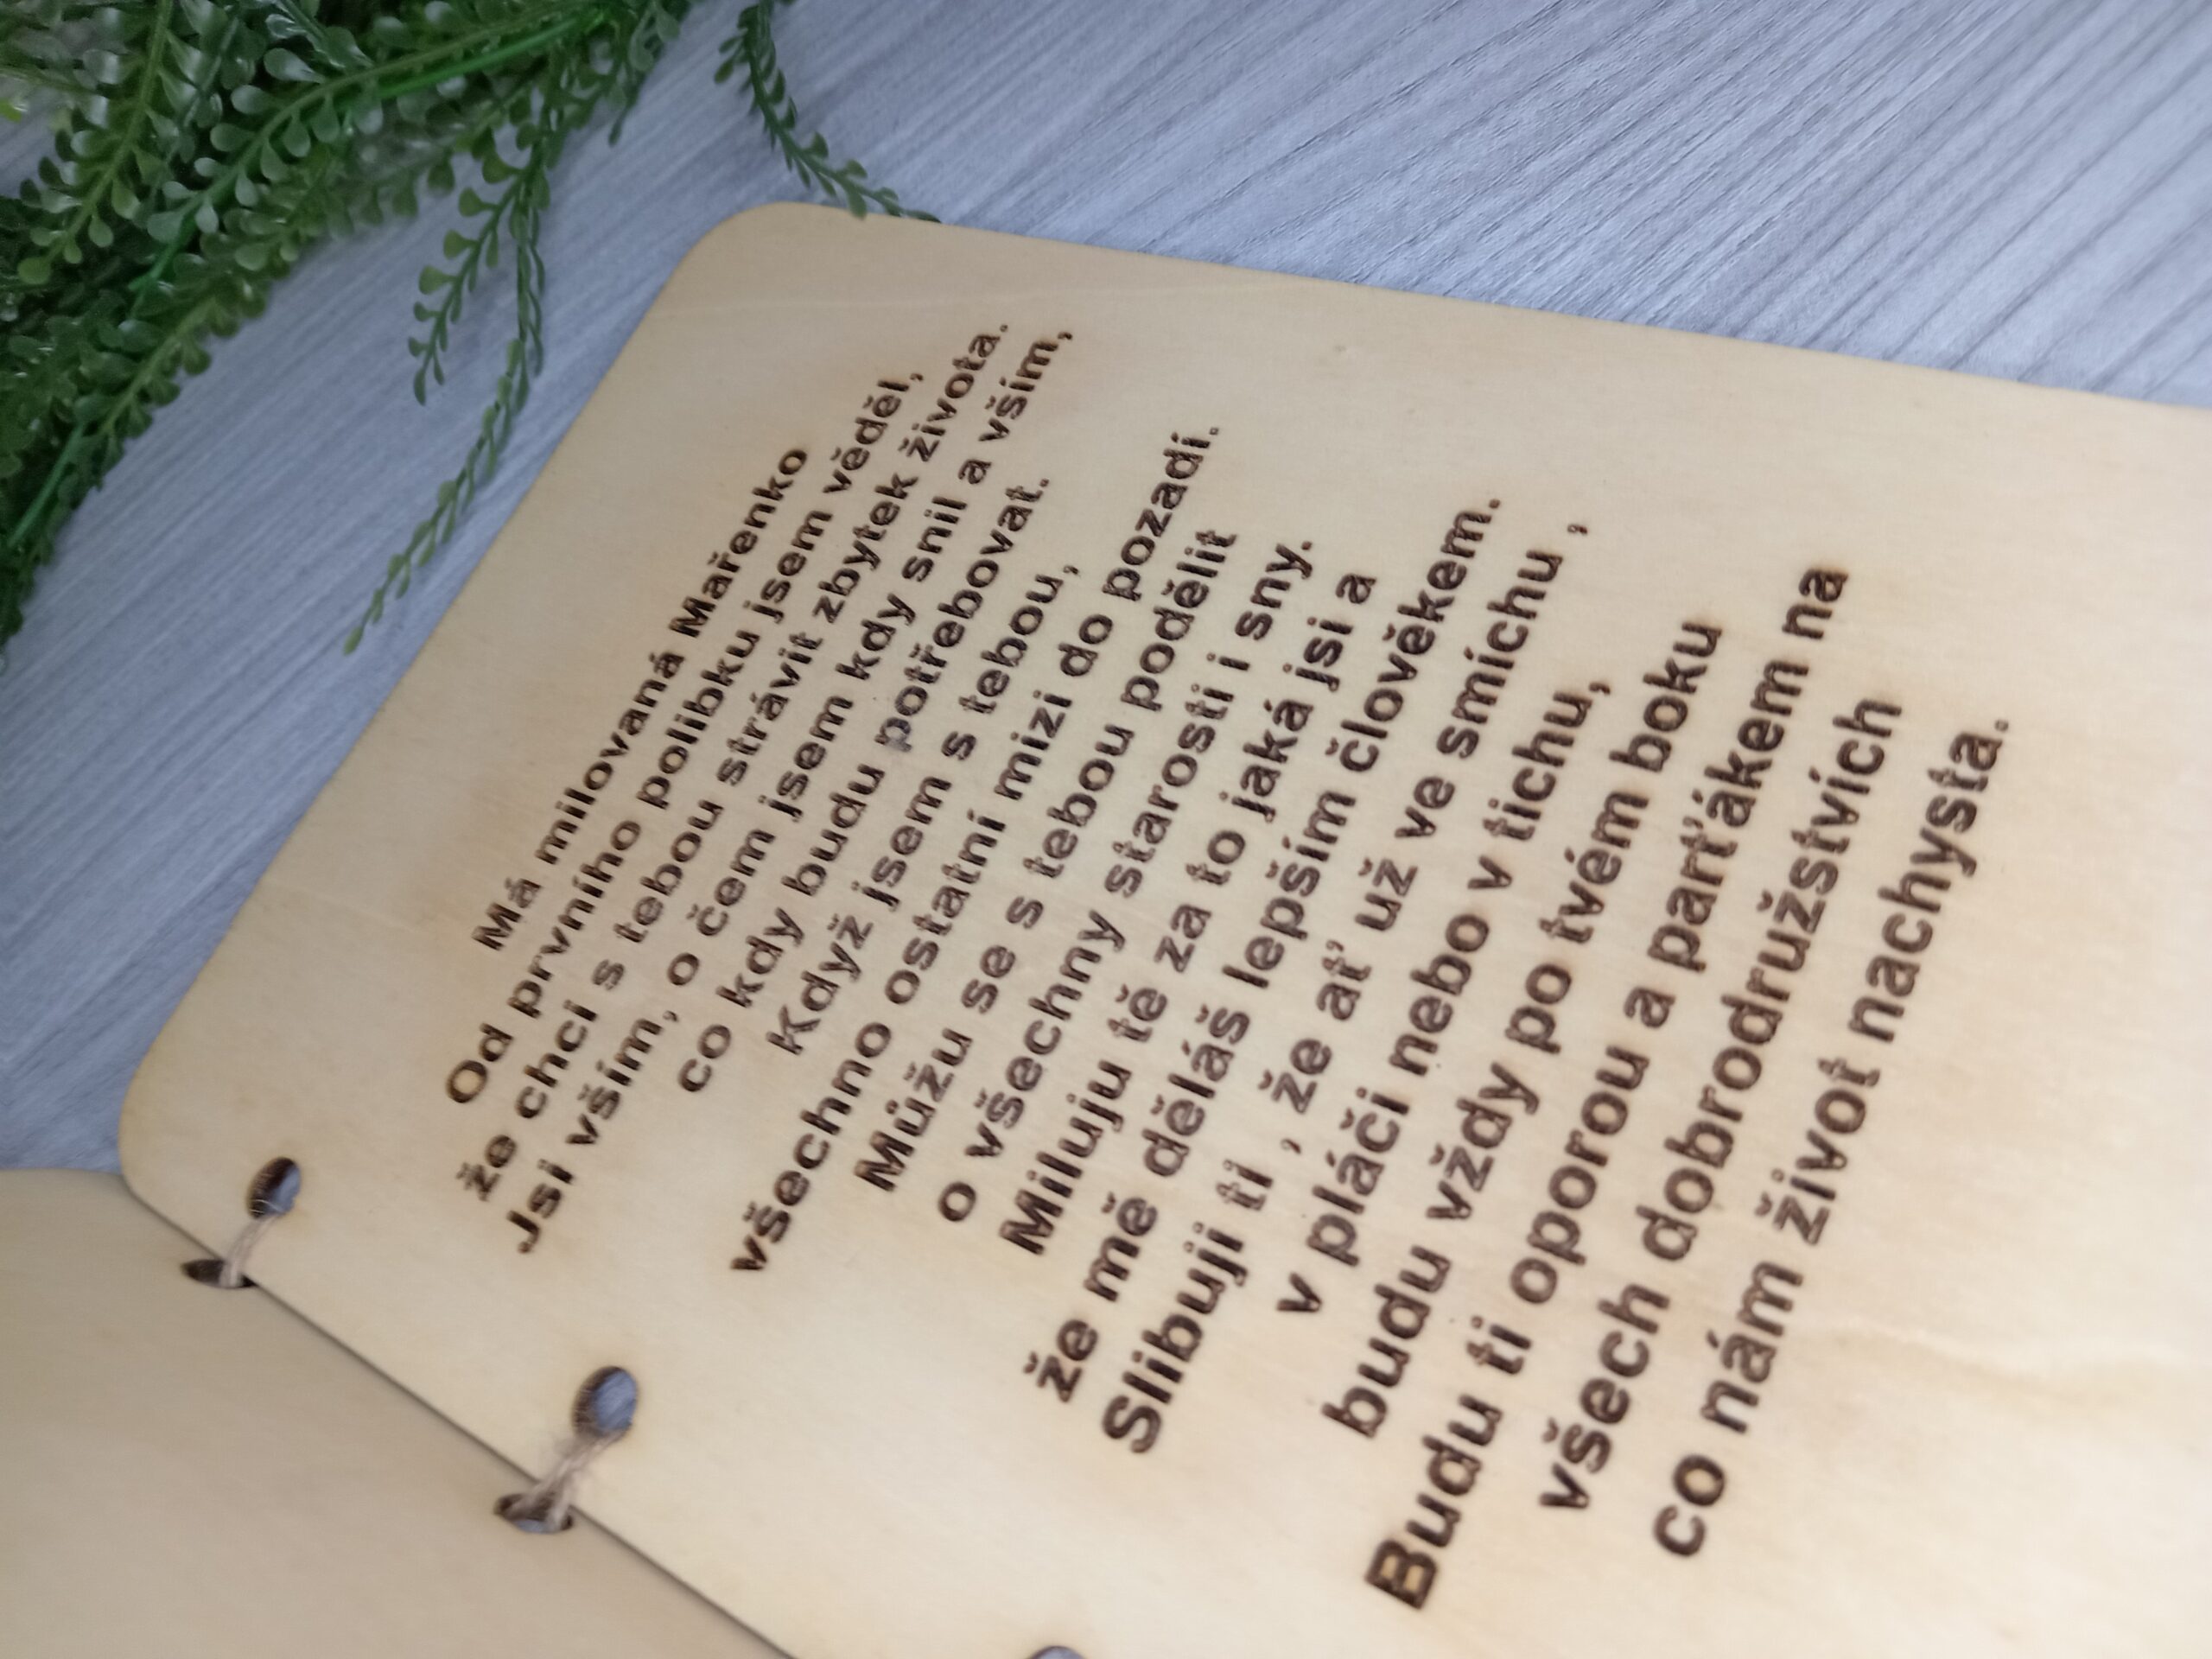 Má milovaná Mařenko
Od prvního polibku jsem věděl,
že chci s tebou strávit zbytek života.
Jsi vším, o čem jsem kdy snil a vším,
co kdy budu potřebovat.
Když jsem s tebou,
všechno ostatní mizí do pozadí.
Můžu se s tebou podělit
o všechny starosti i sny.
Miluju tě za to jaká jsi a
že mě děláš lepším člověkem.
Slibuji ti , že ať už ve smíchu ,
v pláči nebo v tichu,
budu vždy po tvém boku
Budu ti oporou a parťákem na
všech dobrodružstvích
co nám život nachysta.